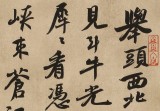 舉頭西北
見斗牛光
犀下看憑
峽束蒼江